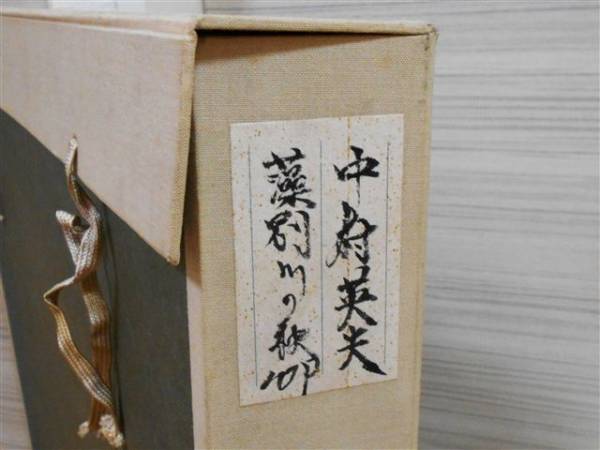 中府英夫
藻別川の秋 10P